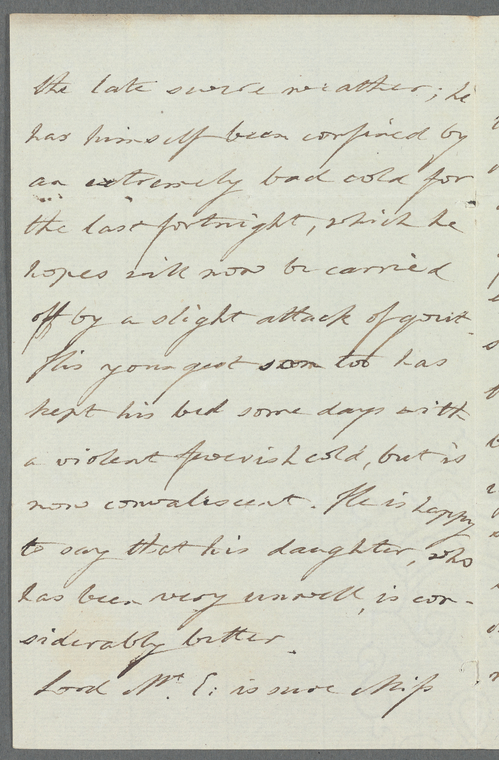 the late severe weather; he
has himself been confined by
an extremely bad cold for
the last fortnight, which he
hopes will now be carried
off by a slight attack of gout.
His youngest son too has
kept his bed some days with
a violent feverish cold, but is
now convalescent. He is happy
to say that his daughter, who
has been very unwell, is con-
siderably better.
Lord Mt. E: is sure Miss